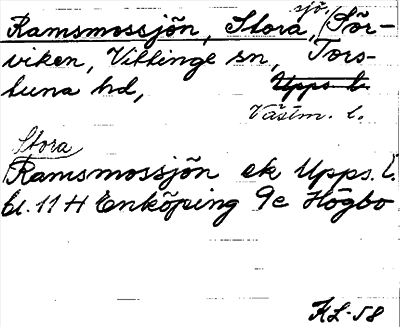 Ramsmossjön, Stora, sjö, (Sör-
viken, Vittinge sn, Tors-
tuna hd, Upps. l.
Västm. l.
Stora
Ramsmossjön ek Upps. l.
bl. 11 H Enköping 9e Högbo
KL-58